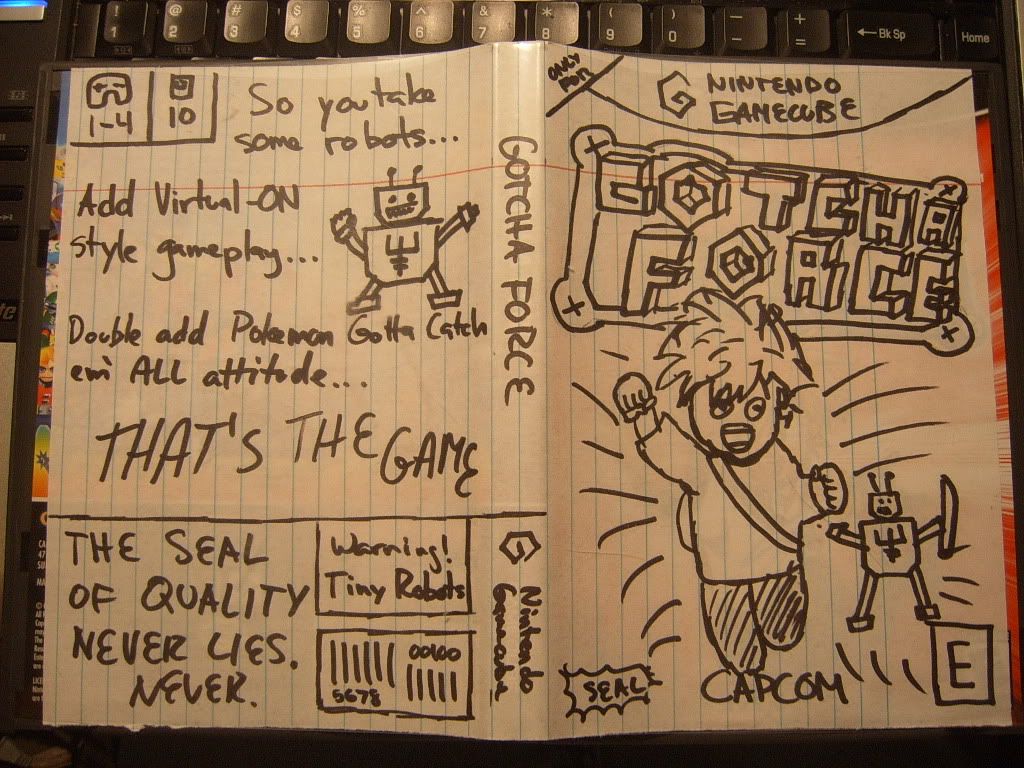 ! @ # $ % ^ & * ( ) — +
1 2 3 4 5 6 7 8 9 0 - = ←Bk Sp Home
1-4
10
So you take
some robots...
Add Virtual-ON
style gameplay...
Double add Pokemon Gotta Catch
em' ALL attitude...
THAT'S THE GAME
THE SEAL
OF QUALITY
NEVER LIES.
NEVER.
Warning!
Tiny Robots
00100
5678
GOTCHA FORCE
G Nintendo
Gamecube
ONLY
FOR
G NINTENDO
GAMECUBE
GOTCHA
FORCE
SEAL
CAPCOM
E